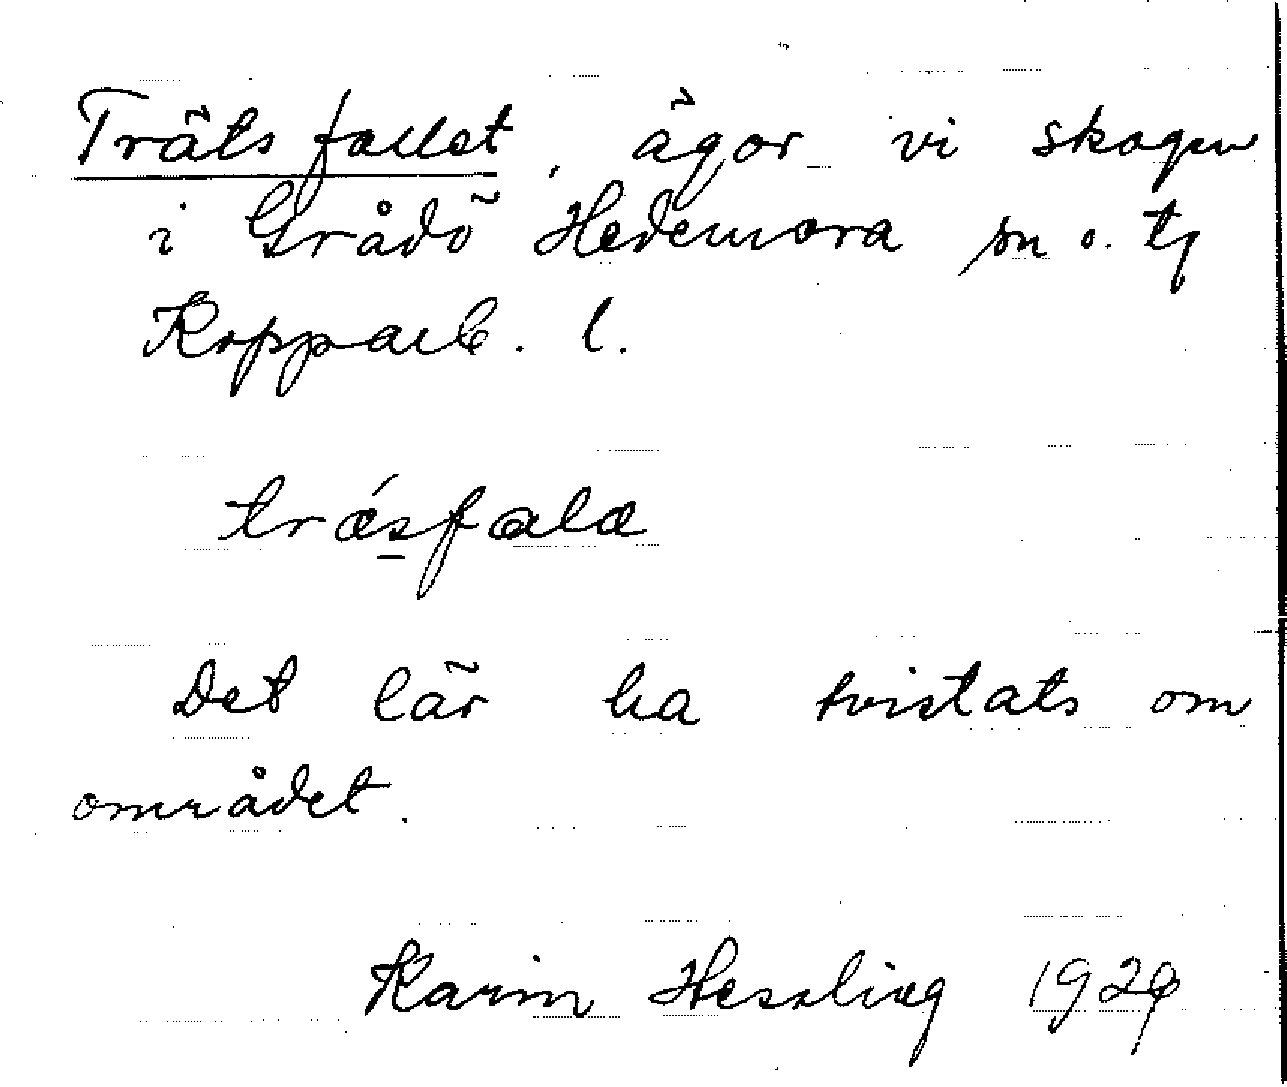 Träts fallet, ägor vi skogen
i Grådö Hedemora sn o. tg
Kopparb. l.
trǽsfala
Det lär ha tvistats om
området.
Karin Hessling 1929